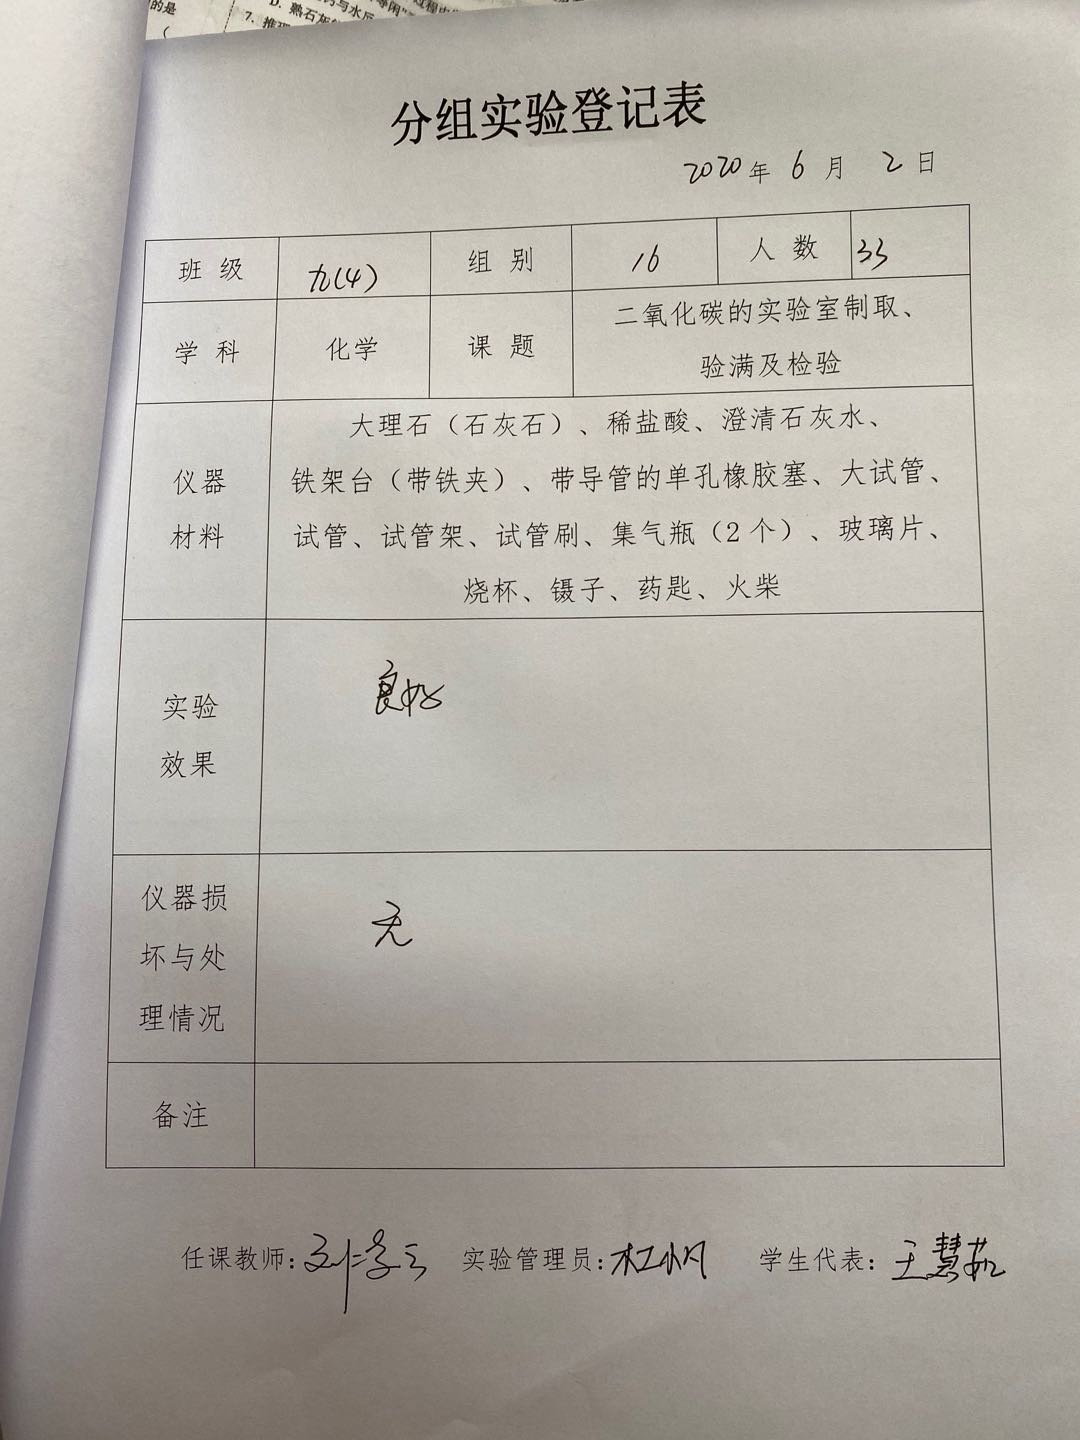 的是
D. 熟石灰
7. 推理
分组实验登记表
2020年 6 月 2 日
班 级 九(4) 组 别 16 人 数 33
学 科 化学 课 题 二氧化碳的实验室制取、
验满及检验
仪器
材料
大理石（石灰石）、稀盐酸、澄清石灰水、
铁架台（带铁夹）、带导管的单孔橡胶塞、大试管、
试管、试管架、试管刷、集气瓶（2个）、玻璃片、
烧杯、镊子、药匙、火柴
实验
效果
良好
仪器损
坏与处
理情况
无
备注
任课教师: 实验管理员: 学生代表: 王慧茹